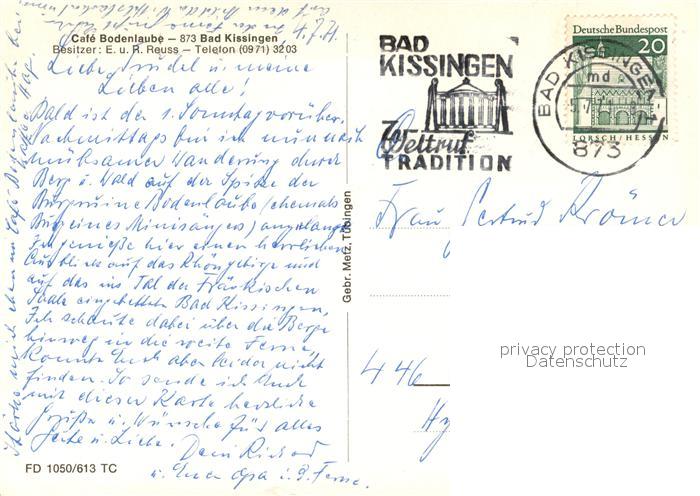 Café Bodenlaube – 873 Bad Kissingen
Besitzer: E. u. R. Reuss – Telefon (0971) 3203
4.7.71
Liebe Trudel u. meine
Lieben alle!
Bald ist der 1. Sonntag vorüber.
Nachmittags bin ich nun nach
Wanderung durch
Berg u. Wald auf der Spitze der
Burgruine Bodenlaube (ehemals
Burg eines Minnesängers) angelangt
genieße hier einen herrlichen
Ausblick auf das Rhöngebirge und
auf das ins Tal der Fränkischen
Saale eingebettete Bad Kissingen,
Ich schaute dabei über die Berge
hinweg in die weite Ferne,
konnte Euch aber leider nicht
finden. So sende ich Euch
mit dieser Karte herzliche
Grüße u. Wünsche für alles
Gute u. Liebe. Dein Richard
u. Euer Opa i. d. Ferne.
Stärke mich eben im Café Bodenlaube bei
FD 1050/613 TC
Gebr. Metz, Tübingen
BAD
KISSINGEN
Weltruf
TRADITION
BAD KISSINGEN
md
873
Deutsche Bundespost
20
LORSCH/HESSEN
Frau Gertrud Krömer
446
privacy protection
Datenschutz